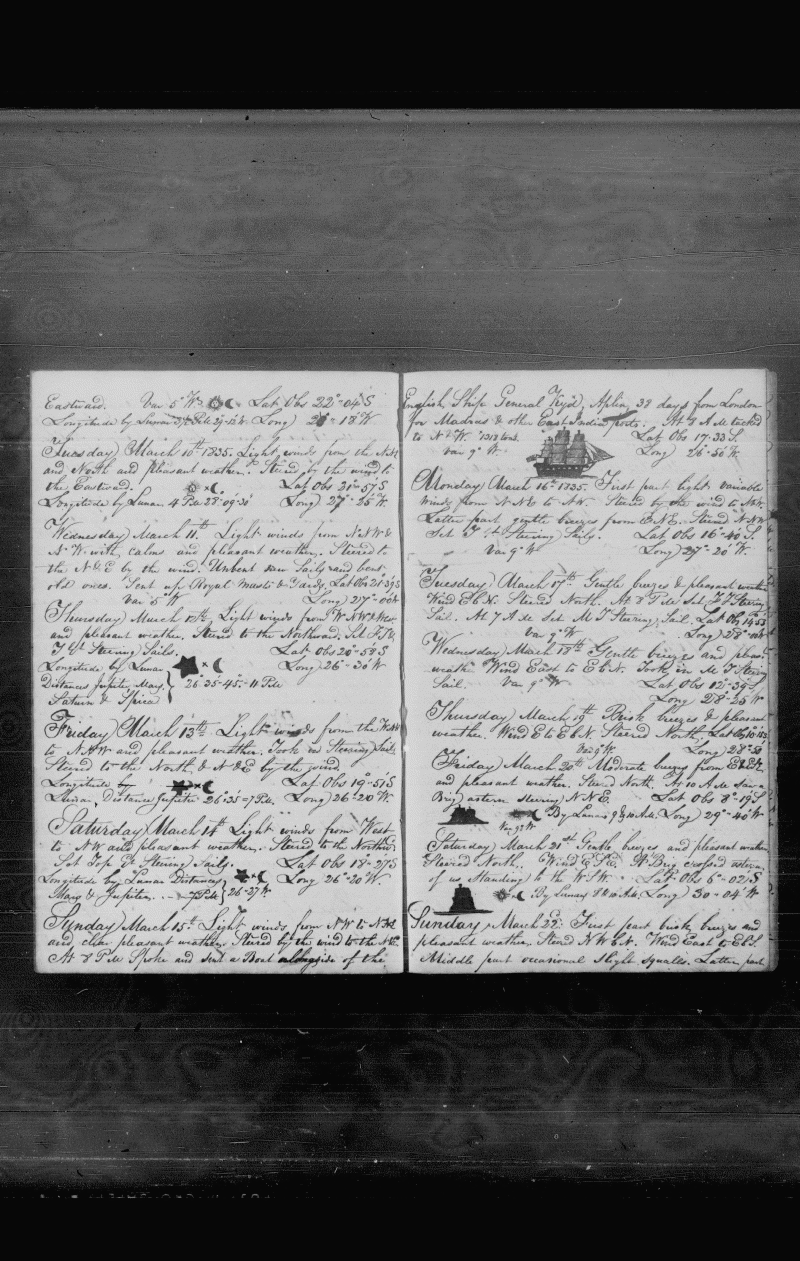 Eastward. Var 5° W. Lat Obs 22°-04 S
Longitude by Lunar Long 18' W
Tuesday March 10th 1835. Light winds from the NNE
and North and pleasant weather. Steered by the wind to
the Eastward. Lat Obs 21°-57 S
Longitude by Lunar 4 PM 28°-09-30 Long 27°-25 W.
Wednesday March 11th Light winds from NNW &
N W with calms and pleasant weather. Steered to
the N & E by the wind. Unbent new Sails and bent
old ones. Sent up Royal masts & Yards. Lat Obs 21°39 S
Var 5° W Long 27°-00 W
Thursday March 12th Light winds from WNW & West
and pleasant weather. Steered to the Northward. Set
Steering Sails. Lat Obs 20°-58 S
Longitude by Lunar Long 26°-30' W
Distances Jupiter Mars, 26°35'-45"-11 PM
Saturn & Spica
Friday March 13th Light winds from the
to NNW and pleasant weather. Took in Steering Sails
Steered to the North & N & E by the wind
Longitude by Lat Obs 19°-51 S
Lunar, Distance Jupiter 26°35'=7 PM. Long 26°-20' W.
Saturday March 14th Light winds from West
to NW and pleasant weather. Steered to the Northward
Set Top Gt Steering Sails. Lat Obs 18-27 S
Longitude by Lunar Distances Long 26°-20' W.
Mars & Jupiter. 7 PM 26-27 W
Sunday March 15th Light winds from NW to
and clear pleasant weather. Steered by the wind to the
At 8 PM Spoke and sent a Boat alongside of the
English Ship General 38 days from London
for Madras & other East India ports. At 8 AM tacked
to N W. 1318 tons. Lat Obs 17-33 S.
Var 9° W. Long 26°-56' W.
Monday March 16th 1835. First part light variable
winds from NNE to NW. Steered by the wind to NW.
Latter part gentle breezes from ENE. Steered NNW
Set Steering Sails. Lat Obs 16°-40 S.
Var 9° W Long 27°-20' W.
Tuesday March 17th Gentle breezes & pleasant weather
Wind E b N. Steered North. At 8 PM Set Steering
Sail. At 7 AM Set M T Steering Sail. Lat Obs 14°53
Var 9° W Long 28°
Wednesday March 18th Gentle breezes and pleasant
weath Wind East to E b N. Took in M T Steering
Sail. Var 9° W Lat Obs 12°-39 S
Long 28°-26' W
Thursday March 19th Brisk breezes & pleasant
weather. Wind E to E b N. Steered North. Lat Obs
Var 9° W. Long 28°-50
Friday March 20th Moderate breezes from
and pleasant weather. Steered North. At 10 AM Saw a
Brig astern steering NNE. Lat Obs 8°-19 S
By Lunars 9 & 10 AM Long 29°-40 W
Var 9° W
Saturday March 21st Gentle breezes and pleasant weather
Steered North. Wind ESE. A Brig crossed astern
of us Standing to the WSW. Lat Obs 6°-02 S
By Lunars 8 & 10 AM Long 30-04' W
Sunday March 22d First part brisk breezes and
pleasant weather. Steered N W b N. Wind East to E b S
Middle part occasional slight squalls. Latter part